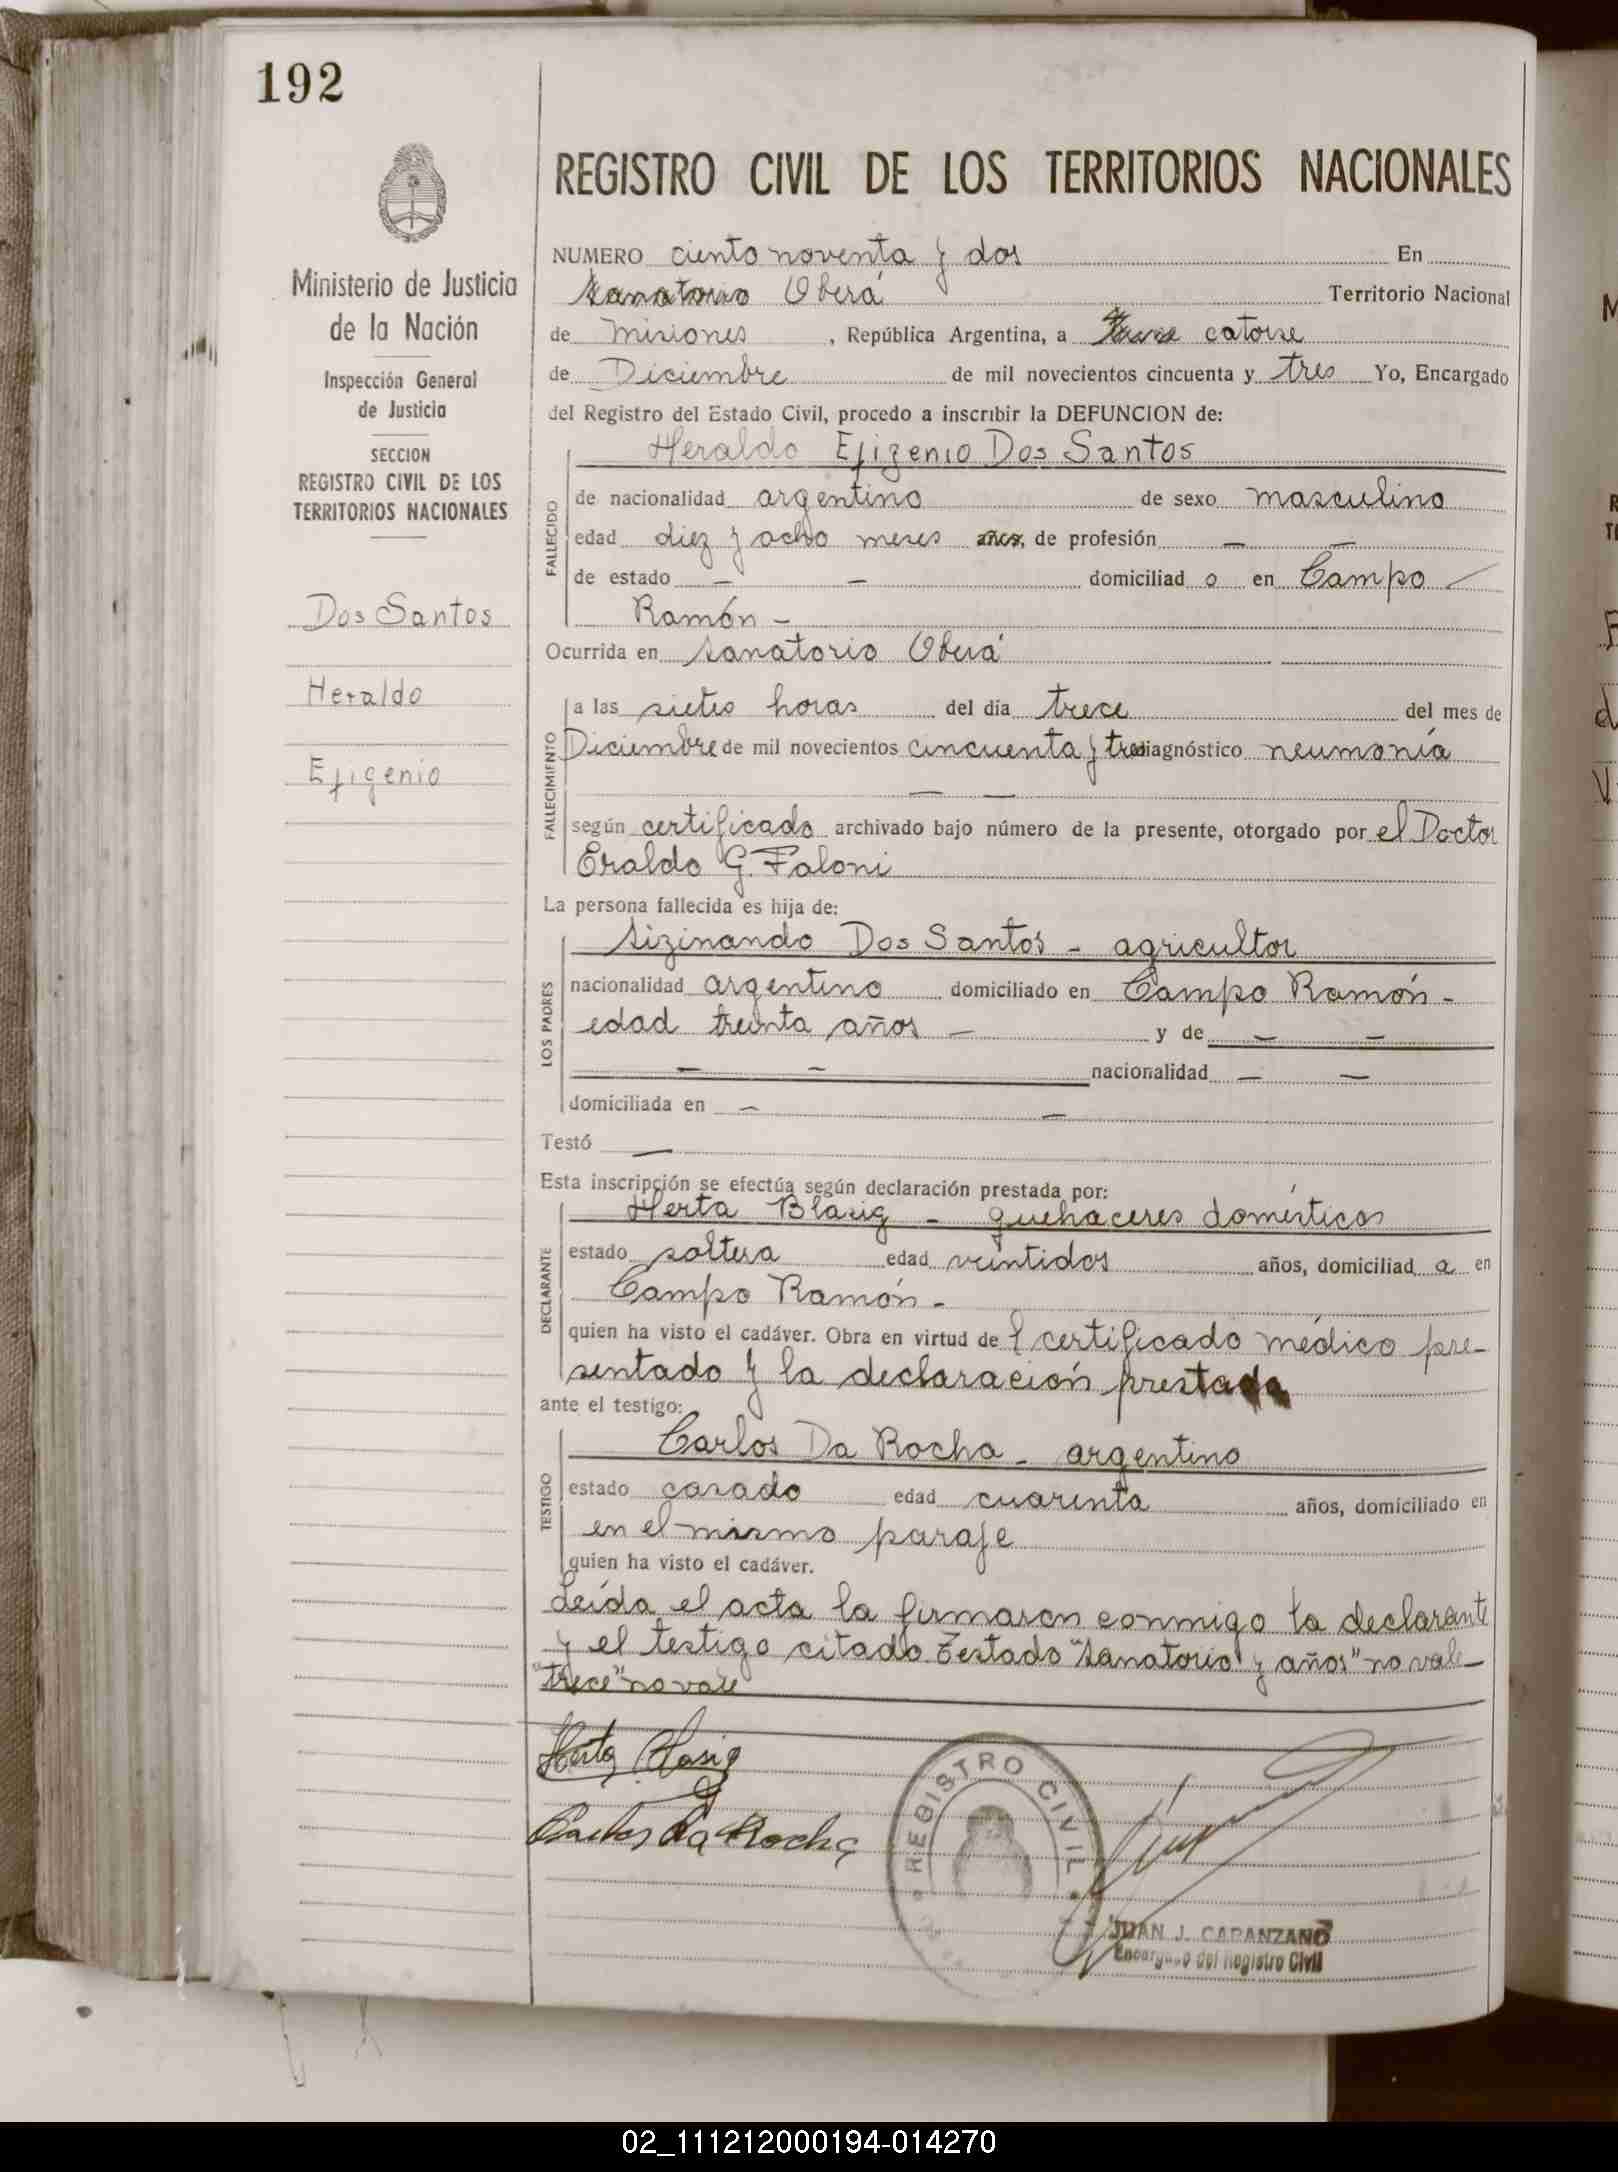 192
Ministerio de Justicia
de la Nación
Inspección General
de Justicia
SECCION
REGISTRO CIVIL DE LOS
TERRITORIOS NACIONALES
Dos Santos
Heraldo
Efigenio
REGISTRO CIVIL DE LOS TERRITORIOS NACIONALES
NUMERO ciento noventa y dos En
Sanatorio Oberá Territorio Nacional
de Misiones , República Argentina, a trece catorse
de Diciembre de mil novecientos cincuenta y tres Yo, Encargado
del Registro del Estado Civil, procedo a inscribir la DEFUNCION de:
Heraldo Efigenio Dos Santos
FALLECIDO
de nacionalidad argentino de sexo masculino
edad diez y ocho meses años, de profesión — —
de estado — — domiciliad o en Campo
Ramón -
Ocurrida en Sanatorio Oberá
FALLECIMIENTO
a las siete horas del día trece del mes de
Diciembre de mil novecientos cincuenta y tres diagnóstico neumonía
— —
según certificado archivado bajo número de la presente, otorgado por el Doctor
Eraldo G. Faloni
La persona fallecida es hija de:
LOS PADRES
Sizinando Dos Santos - agricultor
nacionalidad argentino domiciliado en Campo Ramón -
edad treinta años — y de — —
— — nacionalidad — —
domiciliada en — —
Testó —
Esta inscripción se efectúa según declaración prestada por:
DECLARANTE
Herta Blasig - quehaceres domésticos
estado soltera edad veintidos años, domiciliad a en
Campo Ramón -
quien ha visto el cadáver. Obra en virtud de l certificado médico pre-
sentado y la declaración prestada
ante el testigo:
TESTIGO
Carlos Da Rocha - argentino
estado casado edad cuarenta años, domiciliado en
en el mismo paraje
quien ha visto el cadáver.
Leída el acta la firmaron conmigo la declarante
y el testigo citado. Testado "Sanatorio y años" no vale
"trece" no vale
Herta Blasig
Carlos Da Rocha
REGISTRO CIVIL
JUAN J. CAPANZANO
Encargado del Registro Civil
02_111212000194-014270